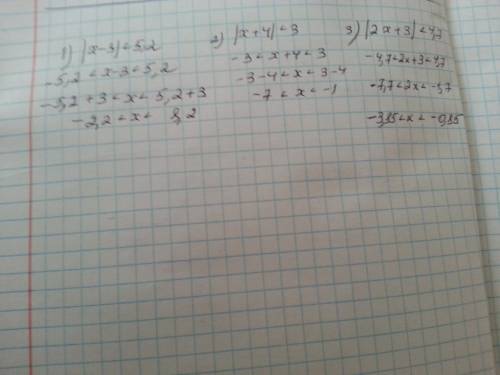 1) |x-3|<5,2
-5,2<x-3<5,2
-5,2+3<x<5,2+3
-2,2<x<8,2
2) |x+4|<3
-3<x+4<3
-3-4<x<3-4
-7<x<-1
3) |2x+3|<4,7
-4,7<2x+3<4,7
-7,7<2x<-1,7
-3,85<x<-0,85